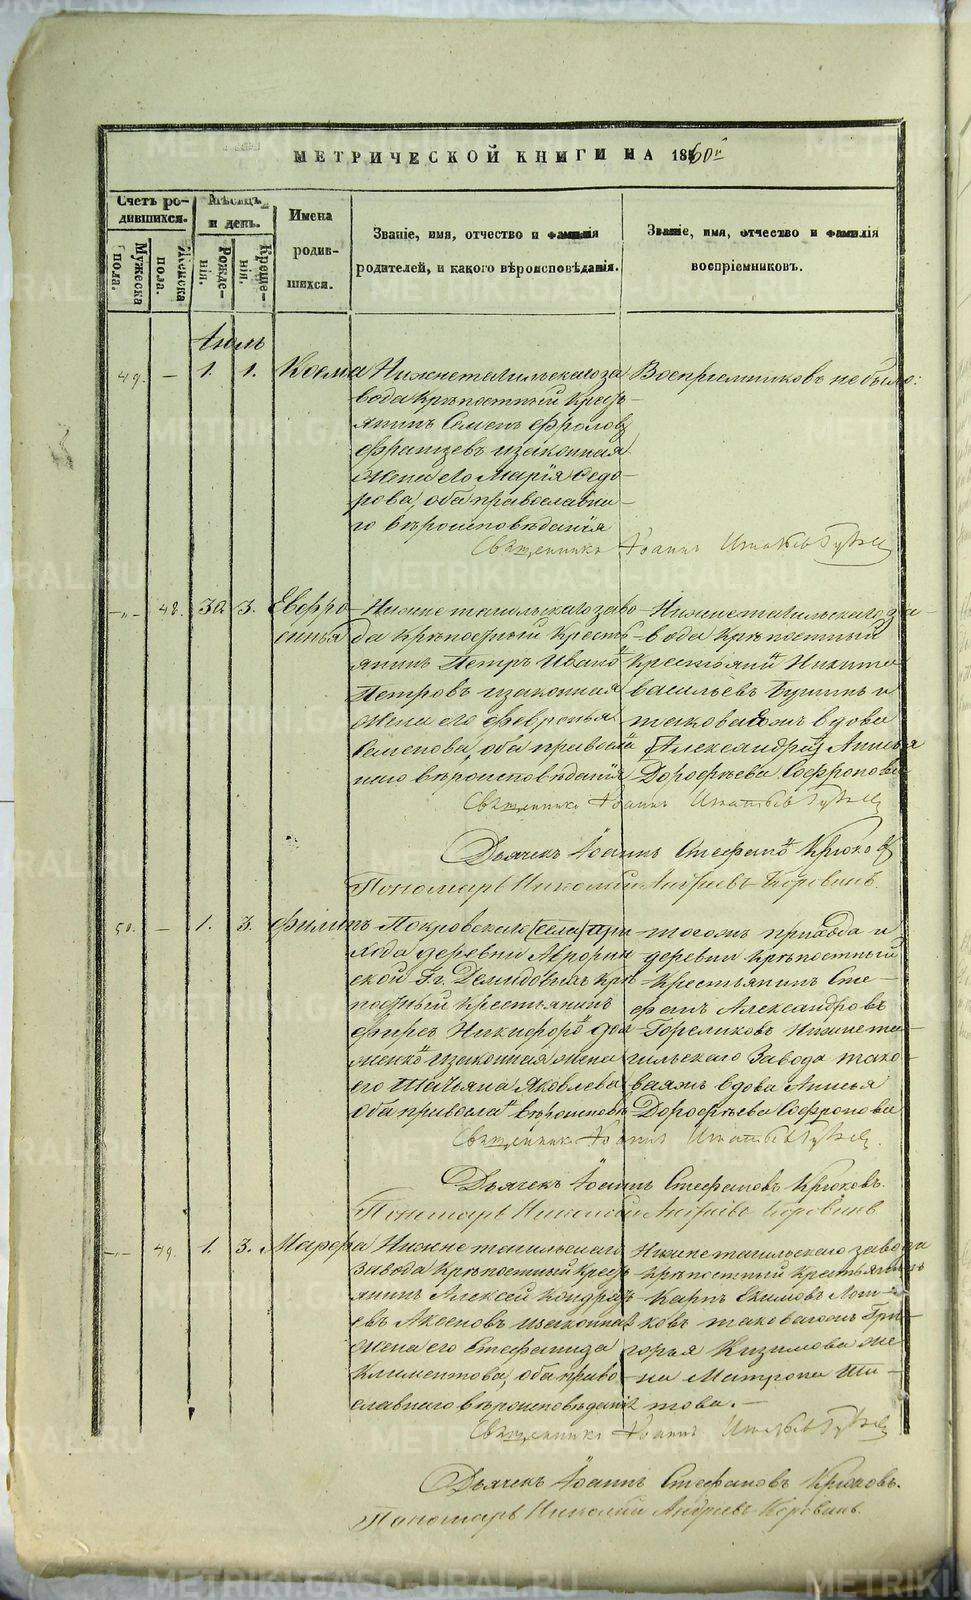 МЕТРИЧЕСКОЙ КНИГИ НА 1860й
Счетъ родившихся.
Мужеска пола.
Женска пола.
Мѣсяцъ и день.
Рожденія.
Крещенія.
Имена родившихся.
Званіе, имя, отчество и фамилія
родителей, и какого вѣроисповѣданія.
Званіе, имя, отчество и фамилія
воспріемниковъ.
Іюль
49. — 1. 1. Косма
Нижнетагильскаго за
вода крѣпостный кресть
янинъ Семенъ Фролов
Францевъ и законная
жена его Марія Ѳедо
рова, оба православна
го вѣроисповѣданія
Воспріемниковъ не было:
Священникъ Іоаннъ
—"— 48. 30. 3. Евфро
синья
Нижнетагильскаго заво
да крѣпостный кресть
янинъ Петръ Иванов
Петровъ и законная
жена его Февронья
Семенова, оба правосла
внаго вѣроисповѣданія
Нижнетагильскаго за
вода крѣпостный
крестьянинъ Никита
Васильевъ и
таковагожъ вдова
Александра Анисья
Дорофѣева Софронова
Священникъ Іоаннъ
Дьячекъ Іоаннъ Стефановъ Крюков
Пономарь Николай Андреевъ Коровинъ.
50. — 1. 3. Филипъ
Покровскаго (села) при
хода деревни
ской Гг. Демидовыхъ крѣ
постный крестьянинъ
Фирсъ Никифоров
и законная жена
его Татьяна Яковлева
оба православ вѣроисповѣ
тогожъ прихода и
деревни крѣпостный
крестьянинъ Сте
фанъ Александровъ
Гореликовъ Нижнета
гильскаго завода тако
ваяжъ вдова Анисья
Дорофѣева Софронова
Священникъ Іоаннъ
Дьячекъ Іоаннъ Стефановъ Крюковъ.
Пономарь Николай Андреевъ Коровинъ
—"— 49. 1. 3. Марфа
Нижнетагильскаго
завода крѣпостный кресть
янинъ Алексей Кондрать
евъ Аксеновъ и законная
жена его Стефанида
Климентова, оба право
славнаго вѣроисповѣданія
Нижнетагильскаго завода
крѣпостный крестьянинъ
Карпъ Екимовъ
ковъ таковагожъ Гри
горья Кизимова же
на Матрона Ти
това. —
Священникъ Іоаннъ
Дьячекъ Іоаннъ Стефановъ Крюковъ.
Пономарь Николай Андреевъ Коровинъ.
METRIKI.GASO-URAL.RU